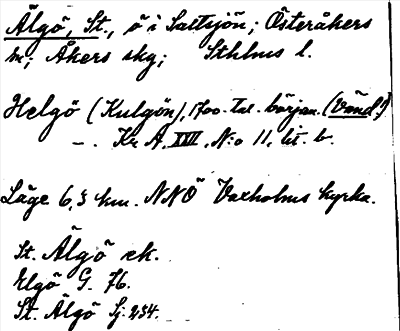 Älgö, St., ö i Saltsjön; Österåkers
sn; Åkers skg; Sthlms l.
Helgö (Kulgön), 1700-tal. början. (Vänd!)
—. Kr A, XVII, N:o 11, lit. b.
Läge 6,3 km. NNÖ Vaxholms kyrka.
St. Älgö ek.
Elgö G. 76.
St. Älgö Sj. 234.